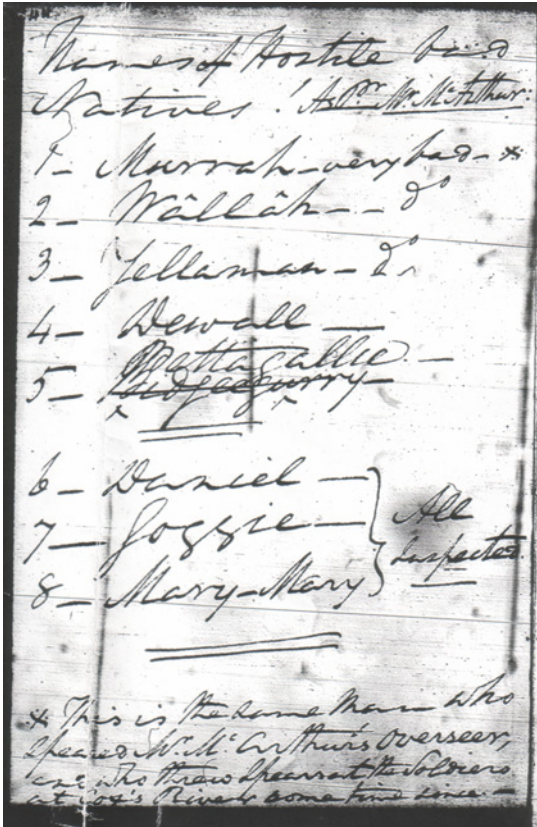 Names of Hostile bad
Natives! As Pr. Mr. McArthur:
1 - Murrah - very bad - *
2 - Wâllâh - - do
3 - Yellaman - do
4 - Dewall -
Battagallie -
5 - Budgeegurry -
6 - Daniel -
7 - Goggie -
8 - Mary-Mary
All
Suspected.
* This is the same Man who
speared Mr. McArthur's Overseer,
and who threw Spears at the Soldiers
at Cox's River some time since. -